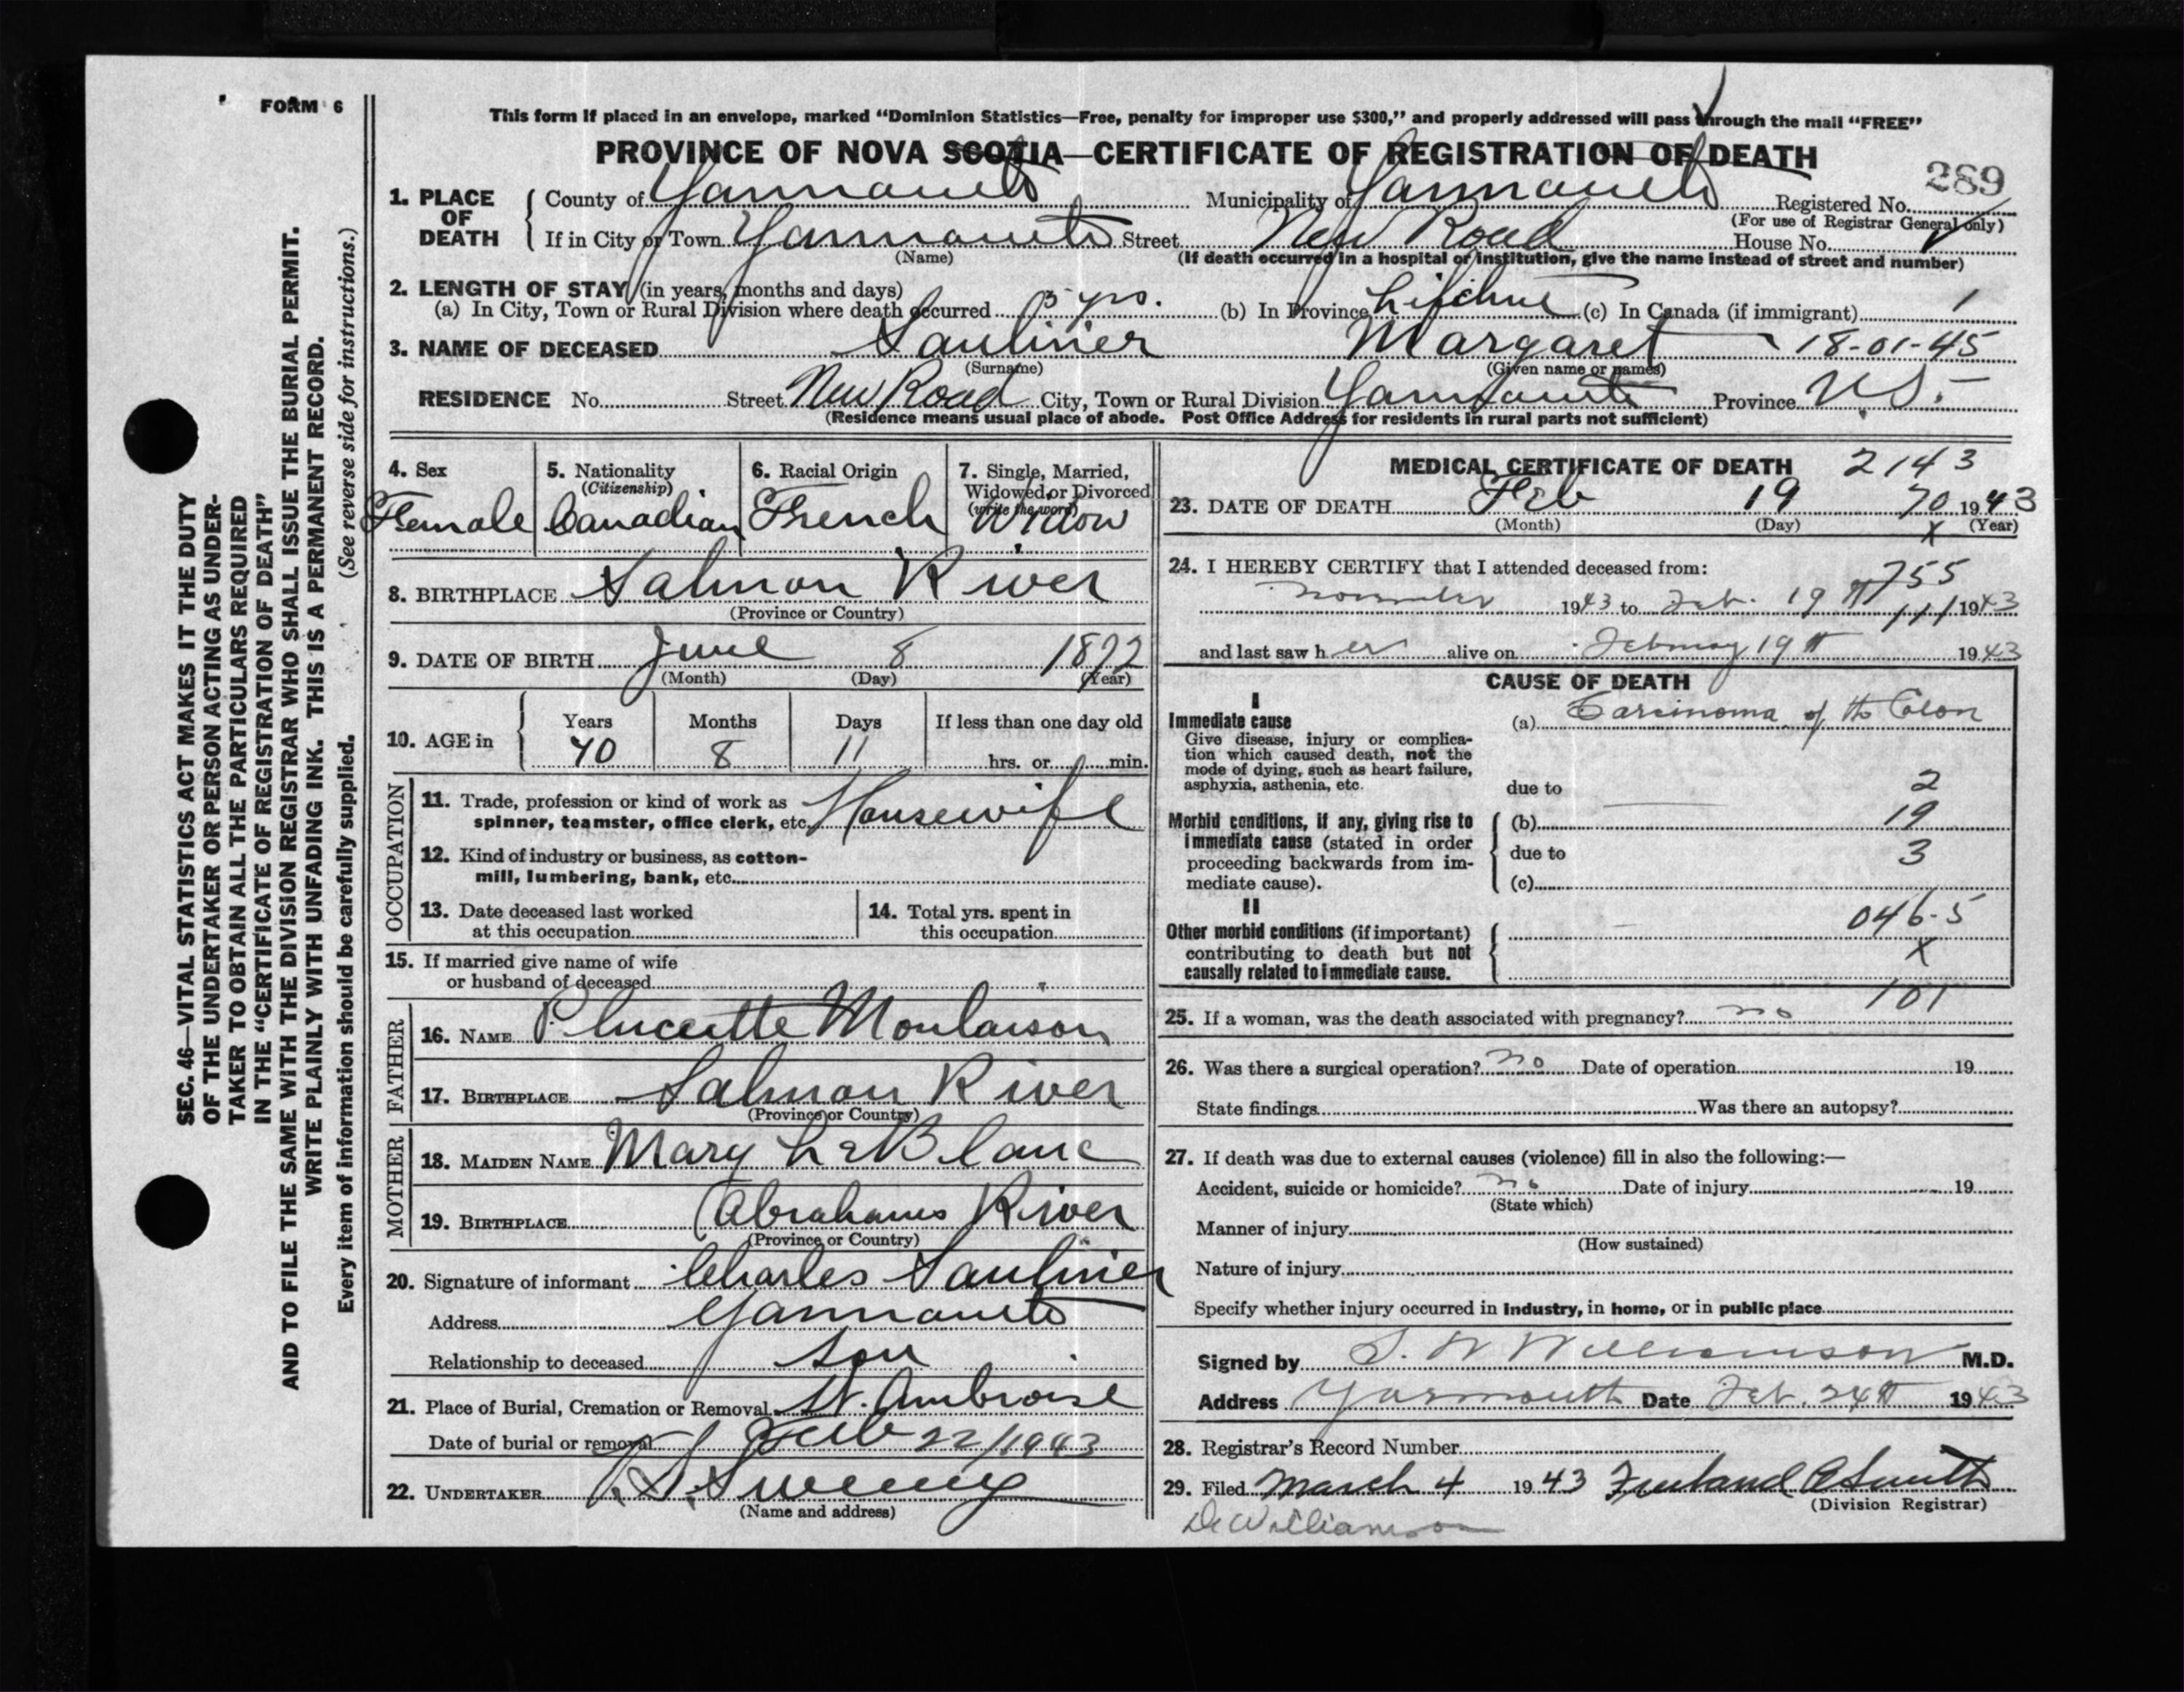 FORM 6
This form if placed in an envelope, marked "Dominion Statistics—Free, penalty for improper use $300," and properly addressed will pass through the mail "FREE"
PROVINCE OF NOVA SCOTIA—CERTIFICATE OF REGISTRATION OF DEATH
289
1. PLACE OF DEATH County of Yarmouth Municipality of Yarmouth Registered No.
(For use of Registrar General only)
If in City or Town Yarmouth Street New Road House No.
(Name) (If death occurred in a hospital or institution, give the name instead of street and number)
2. LENGTH OF STAY (in years, months and days)
(a) In City, Town or Rural Division where death occurred yrs. (b) In Province Lifetime (c) In Canada (if immigrant) 1
3. NAME OF DECEASED Saulinier Margaret 18-01-45
(Surname) (Given name or names)
RESIDENCE No. Street New Road City, Town or Rural Division Yarmouth Province N.S.
(Residence means usual place of abode. Post Office Address for residents in rural parts not sufficient)
4. Sex Female
5. Nationality (Citizenship) Canadian
6. Racial Origin French
7. Single, Married, Widowed or Divorced (write the word) Widow
8. BIRTHPLACE Salmon River
(Province or Country)
9. DATE OF BIRTH June 8 1872
(Month) (Day) (Year)
10. AGE in Years Months Days If less than one day old
70 8 11 hrs. or min.
OCCUPATION
11. Trade, profession or kind of work as spinner, teamster, office clerk, etc. Housewife
12. Kind of industry or business, as cotton-mill, lumbering, bank, etc.
13. Date deceased last worked at this occupation
14. Total yrs. spent in this occupation
15. If married give name of wife or husband of deceased
FATHER
16. NAME Moulaison
17. BIRTHPLACE Salmon River
(Province or Country)
MOTHER
18. MAIDEN NAME Mary LeBlanc
19. BIRTHPLACE Abrahams River
(Province or Country)
20. Signature of informant Charles Saulinier
Address Yarmouth
Relationship to deceased Son
21. Place of Burial, Cremation or Removal St. Ambroise
Date of burial or removal Feb 22/1943
22. UNDERTAKER Sweeny
(Name and address)
MEDICAL CERTIFICATE OF DEATH 2143
23. DATE OF DEATH Feb 19 70 1943
(Month) (Day) X (Year)
24. I HEREBY CERTIFY that I attended deceased from:
755
November 1943 to Feb. 19th 111 1943
and last saw her alive on February 19th 1943
CAUSE OF DEATH
I
Immediate cause (a) Carcinoma of the Colon
Give disease, injury or complication which caused death, not the mode of dying, such as heart failure, asphyxia, asthenia, etc.
due to 2
Morbid conditions, if any, giving rise to immediate cause (stated in order proceeding backwards from immediate cause).
(b) 19
due to 3
(c)
II
Other morbid conditions (if important) contributing to death but not causally related to immediate cause.
046-5
X
101
25. If a woman, was the death associated with pregnancy? no
26. Was there a surgical operation? no Date of operation 19
State findings Was there an autopsy?
27. If death was due to external causes (violence) fill in also the following:—
Accident, suicide or homicide? no Date of injury 19
(State which)
Manner of injury
(How sustained)
Nature of injury
Specify whether injury occurred in industry, in home, or in public place
Signed by S. W Williamson M.D.
Address Yarmouth Date Feb. 24th 1943
28. Registrar's Record Number
29. Filed March 4 1943 Smith
(Division Registrar)
Dr Williamson
SEC. 46—VITAL STATISTICS ACT MAKES IT THE DUTY
OF THE UNDERTAKER OR PERSON ACTING AS UNDER-
TAKER TO OBTAIN ALL THE PARTICULARS REQUIRED
IN THE "CERTIFICATE OF REGISTRATION OF DEATH"
AND TO FILE THE SAME WITH THE DIVISION REGISTRAR WHO SHALL ISSUE THE BURIAL PERMIT.
WRITE PLAINLY WITH UNFADING INK. THIS IS A PERMANENT RECORD.
Every item of information should be carefully supplied. (See reverse side for instructions.)